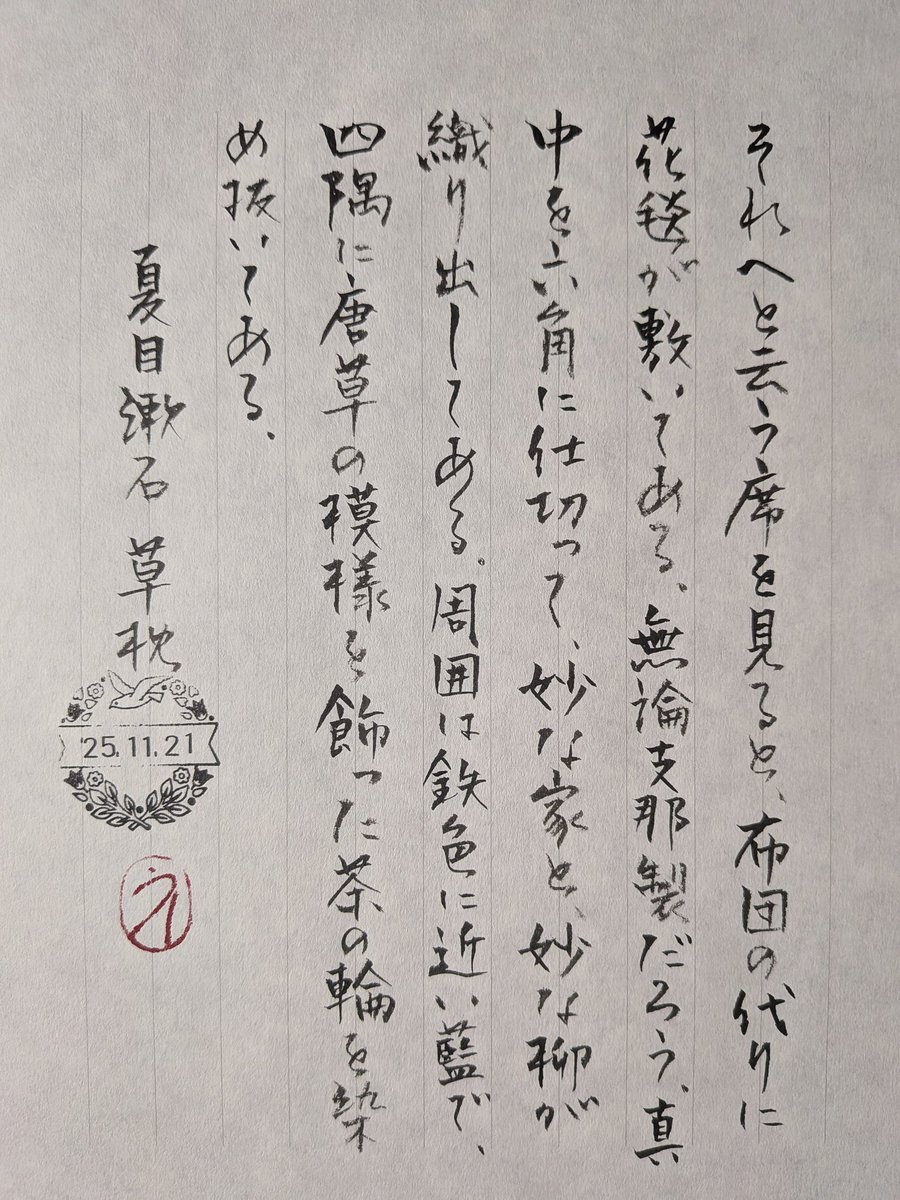 それへと云う席を見ると、布団の代りに
花毯が敷いてある。無論支那製だろう。真
中を六角に仕切って、妙な家と、妙な柳が
織り出してある。周囲は鉄色に近い藍で、
四隅に唐草の模様を飾った茶の輪を染
め抜いてある。
夏目漱石 草枕
'25.11.21